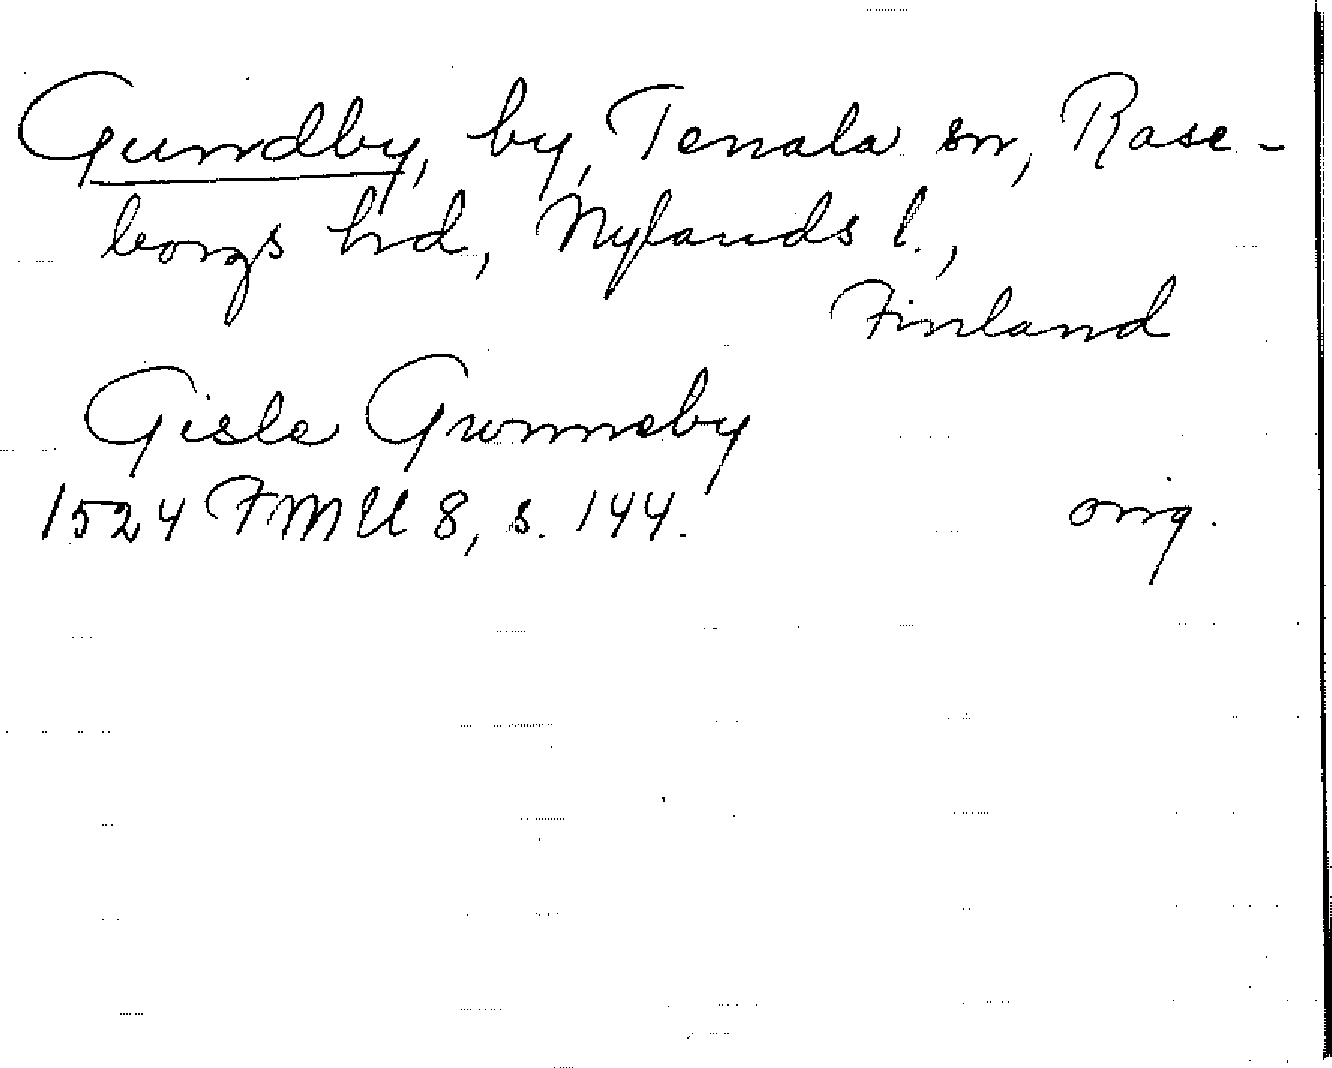 Gunndby, by, Tenala sn, Rase-
borgs hd, Nylands l.,
Finland
Gisle Gwnnneby
1524 FMU 8, s. 144.
orig.